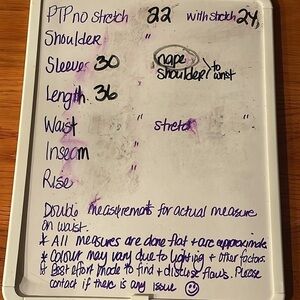 PTP no stretch 22 with stretch 24"
Shoulder "
Sleeves 30 nape shoulder > to wrist
Length 36
Waist " stretch "
Inseam "
Rise "
Double measurements for actual measure
on waist.
* All measures are done flat + are approximate
* Colour may vary due to lighting + other factors
* Best effort made to find + disclose flaws. Please
contact if there is any issue ☺